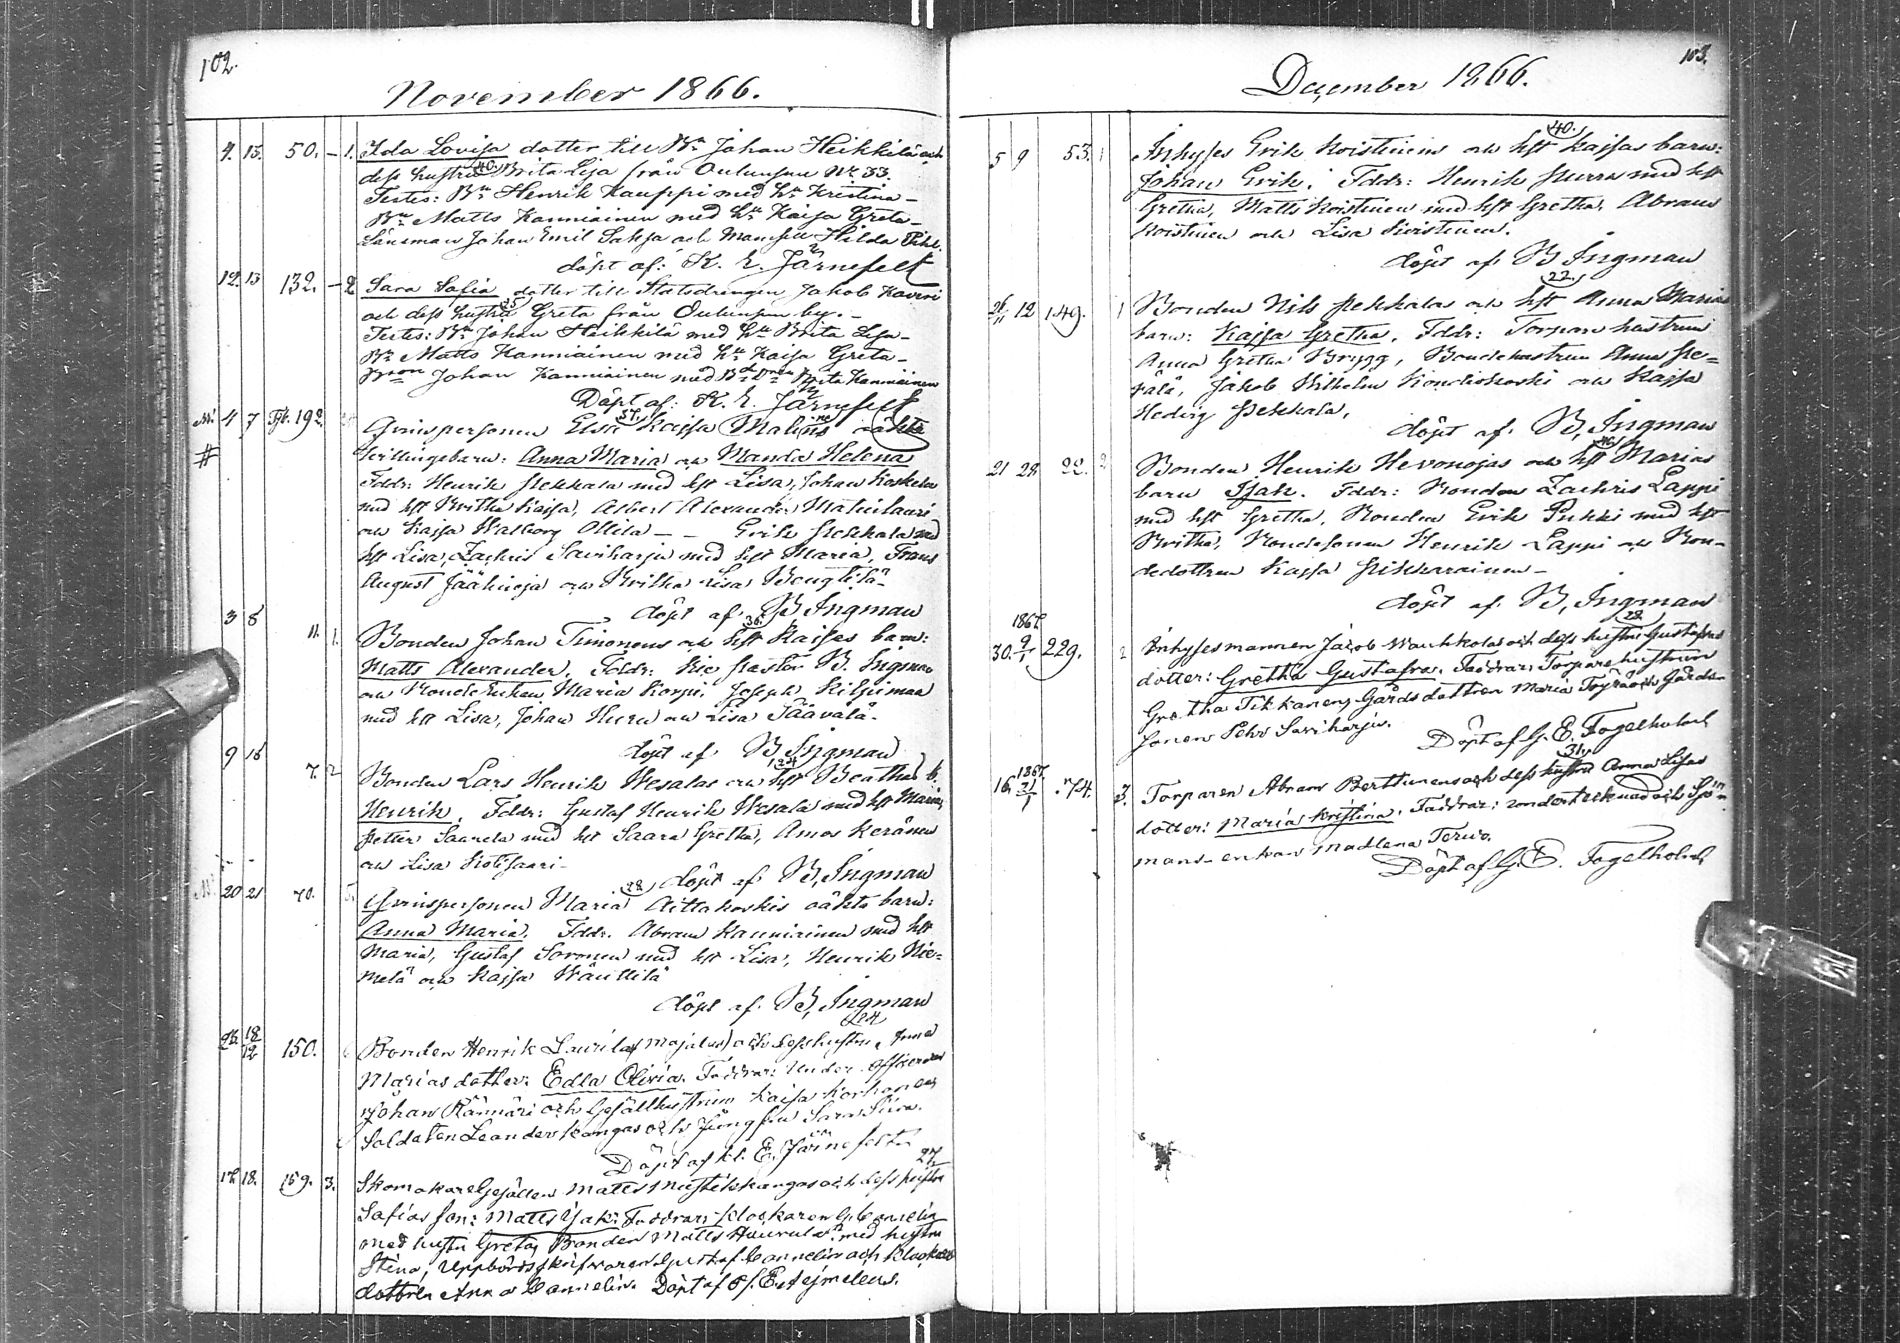 102.
November 1866.
4. 15. 50. – 1. Ida Lovisa dotter till Bn Johan Heikkilä och
dess hustru 40. Brita Lisa från Oulunsuu No 33.
Testes: Bn Henrik Kauppi med hu Kristina –
Bn Matts Kanniainen med hu Kaisa Greta –
Länsman Johan Emil Saksa och Mamsell Hilda
döpt af: K. E. Järnefelt
12. 13 132. – 2 Sara Sofia dotter till Statsdrengen Jakob Kaveri
och dess hustru 25 Greta från Oulunsuu by. –
Testes: Bn Johan Heikkilä med hu Brita Lisa –
Bn Matts Kanniainen med hu Kaisa Greta –
Bson Johan Kanniainen med Brita Kanniainen
Döpt af: K. E. Järnefelt
4 7 192 Qvinspersonen Elsa Kaissa oäkta
# tvillingebarn: Anna Maria och Manda Helena
Fddr: Henrik Pekkala med hst Lisa, Johan Koskela
med hst Britha Kaisa, Albert Alexander Matinlauri
och Kajsa Walborg Ollila – – Erik Pekkala med
hst Lisa, Zachris Saviharju med hst Maria, Frans
August Jääskoja och Britha Lisa Bengtilä –
döpt af B Ingman
3 8 11. 1. Bonden Johan Timonens och hst 36. Kaisas barn:
Matts Alexander. Fddr: Vice Pastor B. Ingman
och Bondeenkan Maria Korpi, Joseph Kilpimaa
med hst Lisa, Johan Huru och Lisa Säävälä.
döpt af B Ingman
9 16 7. 2 Bonden Lars Henrik Wesalas och hst 24 Beathas b.
Henrik. Fddr: Gustaf Henrik Wesala med hst Maria,
Petter Saarela med hst Saara Gretha, Amos Keränen
och Lisa Kotisaari –
döpt af B, Ingman
20 21 70. 5. Qvinspersonen Maria 28 Aittakoskis oäkta barn:
Anna Maria. Fddr. Abram Kanniainen med hst
Maria, Gustaf Soronen med hst Lisa, Henrik Nie-
melä och Kajsa Wänttilä
döpt af B, Ingman
26. 18/12 150. 6 Bonden Henrik Laurila (Majalas) och dess hustru 24 Anna
Marias dotter: Edla Olivia. Faddrar: Under officeren
Johan Rännäri och Gesällhustrun Kaisa Korhonen
Soldaten Leander Kangas och Jungfru Sara
Döpt af K. E. Järnefelt
17. 18. 159. 3. Skomakare Gesällen Matts Mustikkangas och dess hustru 27
Sofias son: Matts Isak. Faddrar: Klockaren G. Cannelin
med hustru Greta, Bonden Matts Haurula med hustru
Stina, Uppbördsskrifvaren Gustaf Cannelin och Klockare
dottren Anna Cannelin. Döpt af Ejmeleus.
103.
December 1866.
5 9 53. 1 Inhyses Erik Koistinens och hst 40. Kaisas barn:
Johan Erik. Fddr: Henrik Purra med hst
Gretha, Matts Koistinen med hst Gretha, Abram
Koistinen och Lisa Koistinen.
döpt af B Ingman
26/11 12 149. 1 Bonden Nils Pekkalas och hst 22. Anna Marias
barn: Kajsa Gretha. Fddr: Torpare hustrun
Anna Gretha Brygg, Bondehustrun Anna Pe-
rälä, Jakob Wilhelm Kondiokoski och Kajsa
Hedvig Pekkala.
döpt af B, Ingman
21 28 22. 2 Bonden Henrik Hevonojas och hst Marias
barn Isak. Fddr: Bonden Zachris Lappi
med hst Gretha, Bonden Erik Pukki med hst
Britha, Bondesonen Henrik Lappi och Bon-
dedottren Kajsa Pikkarainen –
döpt af B, Ingman
30. 1867 9/1 229. 2 Inhysesmannen Jacob Wauhkolas och dess hustru 28. Gustafvas
dotter: Gretha Gustafva. Faddrar: Torparehustrun
Gretha Tikkanen, Gårdsdottren Maria Töyrä och Gårds-
sonen Pehr Saviharju.
Döpt af G. E. Fogelholm
16. 1867. 21/1 74. 3. Torparen Abram Perttunens och dess hustru 31. Anna Lisas
dotter: Maria Kristina. Faddrar: undertecknad och Sjö-
mans-enkan Madlena Tervo.
Döpt af G. E. Fogelholm